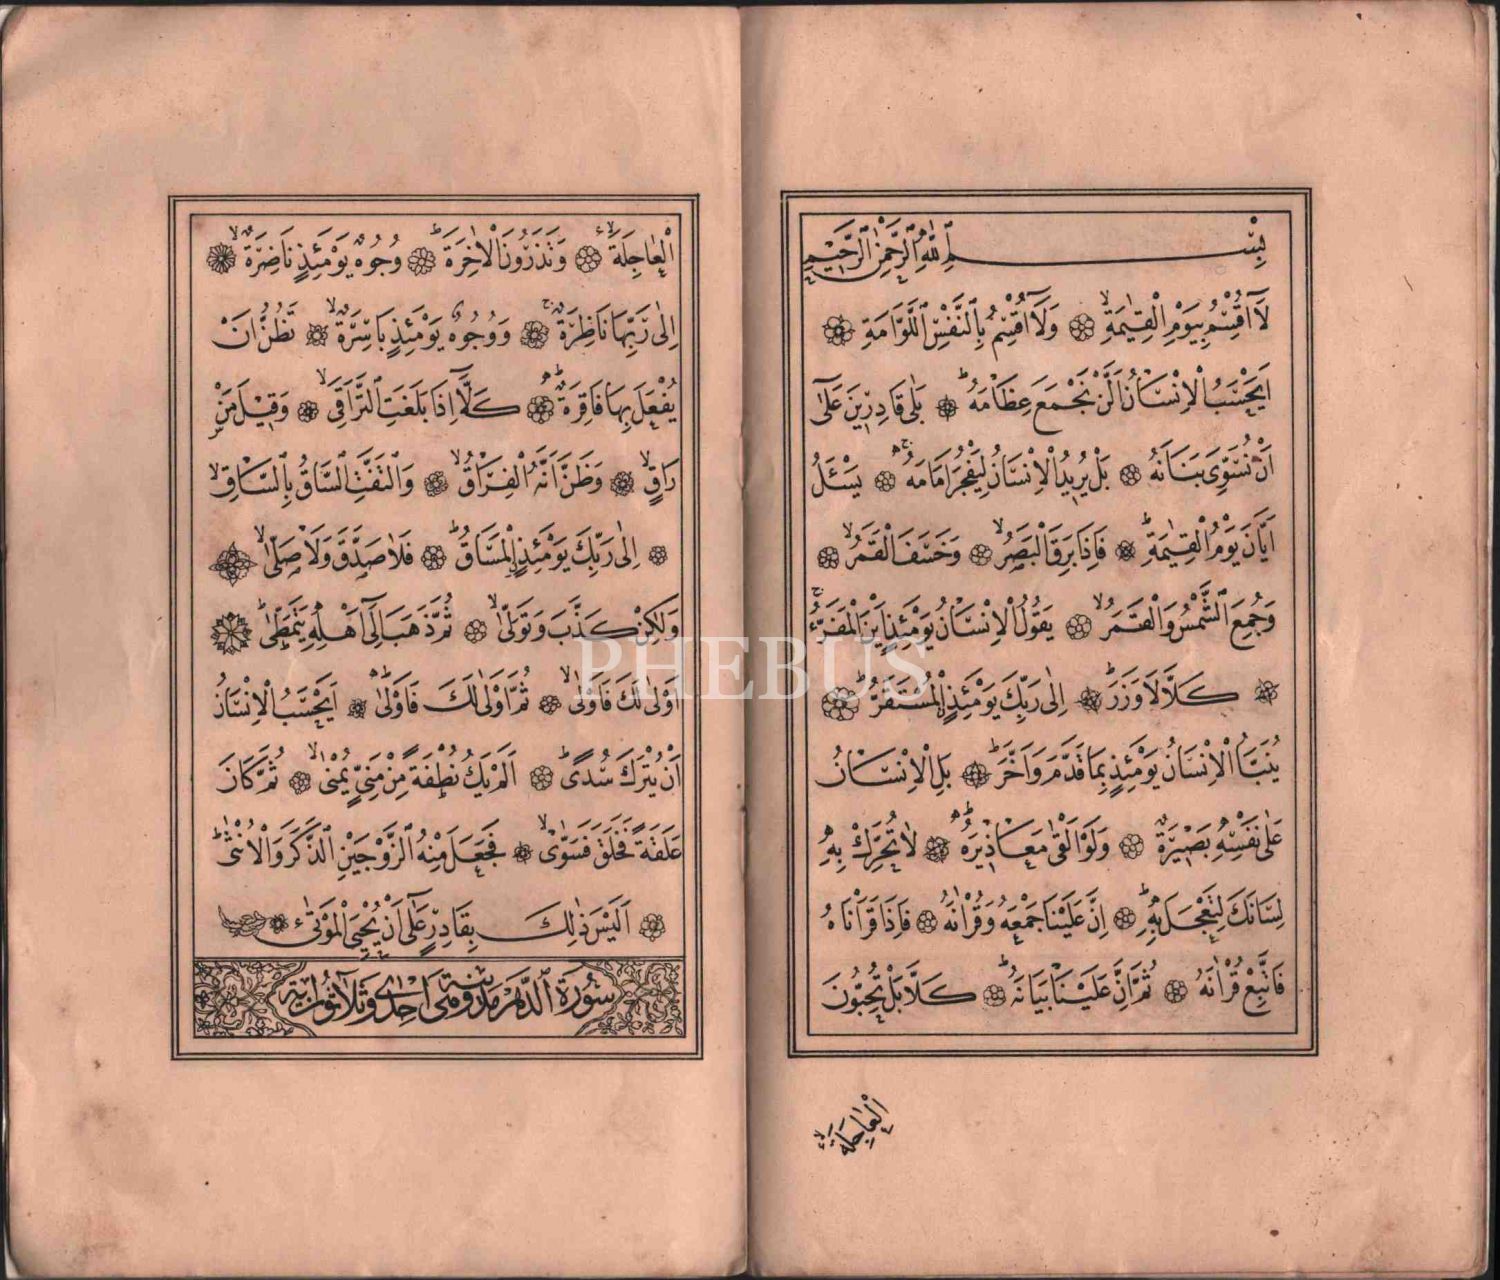 بِسْمِ اللّٰهِ الرَّحْمٰنِ الرَّحِيمِ
لَآ اُقْسِمُ بِيَوْمِ الْقِيٰمَةِۙ وَلَآ اُقْسِمُ بِالنَّفْسِ اللَّوَّامَةِ
اَيَحْسَبُ الْاِنْسَانُ اَلَّنْ نَجْمَعَ عِظَامَهُۜ بَلٰى قَادِرِينَ عَلٰٓى
اَنْ نُسَوِّىَ بَنَانَهُ بَلْ يُرِيدُ الْاِنْسَانُ لِيَفْجُرَ اَمَامَهُۚ يَسْـَٔلُ
اَيَّانَ يَوْمُ الْقِيٰمَةِۜ فَاِذَا بَرِقَ الْبَصَرُۙ وَخَسَفَ الْقَمَرُۙ
وَجُمِعَ الشَّمْسُ وَالْقَمَرُۙ يَقُولُ الْاِنْسَانُ يَوْمَئِذٍ اَيْنَ الْمَفَرُّۚ
كَلَّا لَا وَزَرَۜ اِلٰى رَبِّكَ يَوْمَئِذٍ الْمُسْتَقَرُّۜ
يُنَبَّؤُا الْاِنْسَانُ يَوْمَئِذٍ بِمَا قَدَّمَ وَاَخَّرَۜ بَلِ الْاِنْسَانُ
عَلٰى نَفْسِهِ بَصِيرَةٌۙ وَلَوْ اَلْقٰى مَعَاذِيرَهُۜ لَا تُحَرِّكْ بِهِ
لِسَانَكَ لِتَعْجَلَ بِهِۜ اِنَّ عَلَيْنَا جَمْعَهُ وَقُرْاٰنَهُۚ فَاِذَا قَرَاْنَاهُ
فَاتَّبِعْ قُرْاٰنَهُۚ ثُمَّ اِنَّ عَلَيْنَا بَيَانَهُۜ كَلَّا بَلْ تُحِبُّونَ
الْعَاجِلَةَۙ
الْعَاجِلَةَۙ وَتَذَرُونَ الْاٰخِرَةَۜ وُجُوهٌ يَوْمَئِذٍ نَاضِرَةٌۙ
اِلٰى رَبِّهَا نَاظِرَةٌۚ وَوُجُوهٌ يَوْمَئِذٍ بَاسِرَةٌۙ تَظُنُّ اَنْ
يُفْعَلَ بِهَا فَاقِرَةٌۜ كَلَّٓا اِذَا بَلَغَتِ التَّرَاقِىَۙ وَقِيلَ مَنْ
رَاقٍۙ وَظَنَّ اَنَّهُ الْفِرَاقُۙ وَالْتَفَّتِ السَّاقُ بِالسَّاقِۙ
اِلٰى رَبِّكَ يَوْمَئِذٍ الْمَسَاقُۜ فَلَا صَدَّقَ وَلَا صَلّٰىۙ
وَلٰكِنْ كَذَّبَ وَتَوَلّٰىۙ ثُمَّ ذَهَبَ اِلٰٓى اَهْلِهِ يَتَمَطّٰىۜ
اَوْلٰى لَكَ فَاَوْلٰىۙ ثُمَّ اَوْلٰى لَكَ فَاَوْلٰىۜ اَيَحْسَبُ الْاِنْسَانُ
اَنْ يُتْرَكَ سُدًىۜ اَلَمْ يَكُ نُطْفَةً مِنْ مَنِىٍّ يُمْنٰىۙ ثُمَّ كَانَ
عَلَقَةً فَخَلَقَ فَسَوّٰىۙ فَجَعَلَ مِنْهُ الزَّوْجَيْنِ الذَّكَرَ وَالْاُنْثٰىۜ
اَلَيْسَ ذٰلِكَ بِقَادِرٍ عَلٰٓى اَنْ يُحْيِىَ الْمَوْتٰى
سُورَةُ الدَّهْرِ مَدَنِيَّةٌ وَهِىَ اِحْدٰى وَثَلَاثُونَ اٰيَةً
PHEBUS